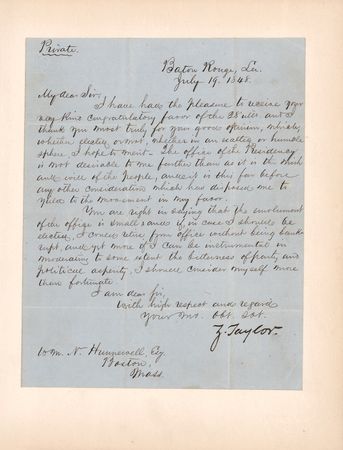 Private.
Baton Rouge, La.
July 19. 1848.
My dear Sir,
I have had the pleasure to receive your
very kind congratulatory favor of the 28 ult and I
thank you most truly for your good opinion, which,
whether elected or not, whether in an exalted or humble
sphere, I hope to merit. The office of the Presidency
is not desirable to me further than as it is the wish
and will of the people, and it is this far before
any other consideration which has disposed me to
yield to the movement in my favor.
You are right in saying that the emolument
of the office is small, and if, in case I should be
elected, I could retire from office without being bank-
rupt, and yet more if I can be instrumental in
moderating to some extent the bitterness of party and
political asperity, I should consider myself more
than fortunate.
I am dear sir,
with high respect and regard
Your Mo. Obt. Svt.
Z. Taylor.
Wm. N. Hunnewell, Esq.
Boston,
Mass.